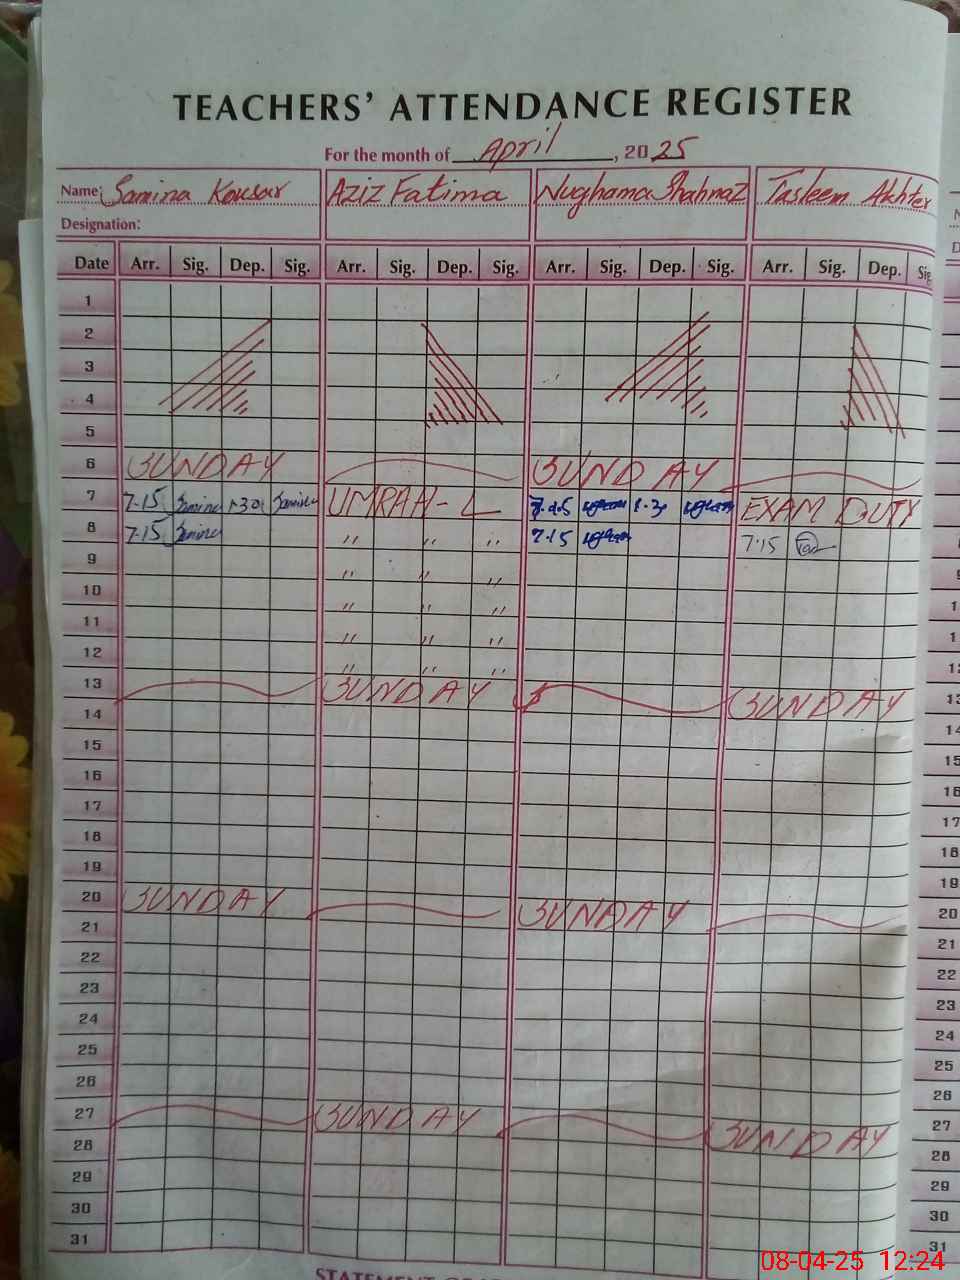 TEACHERS' ATTENDANCE REGISTER
For the month of April, 2025
Name: Samina Kousar Aziz Fatima Nughama Shahnaz Tasleem Akhter
Designation:
Date Arr. Sig. Dep. Sig. Arr. Sig. Dep. Sig. Arr. Sig. Dep. Sig. Arr. Sig. Dep. Sig.
1
2
3
4
5
6 SUNDAY SUNDAY
7 7-15 Samina 1-30 Samina UMRAH-L 7.15 1.30 EXAM DUTY
8 7-15 Samina " " " 7.15 7.15
9 " " "
10 " " "
11 " " "
12 " " "
13 SUNDAY SUNDAY
14
15
16
17
18
19
20 SUNDAY SUNDAY
21
22
23
24
25
26
27 SUNDAY SUNDAY
28
29
30
31
08-04-25 12:24